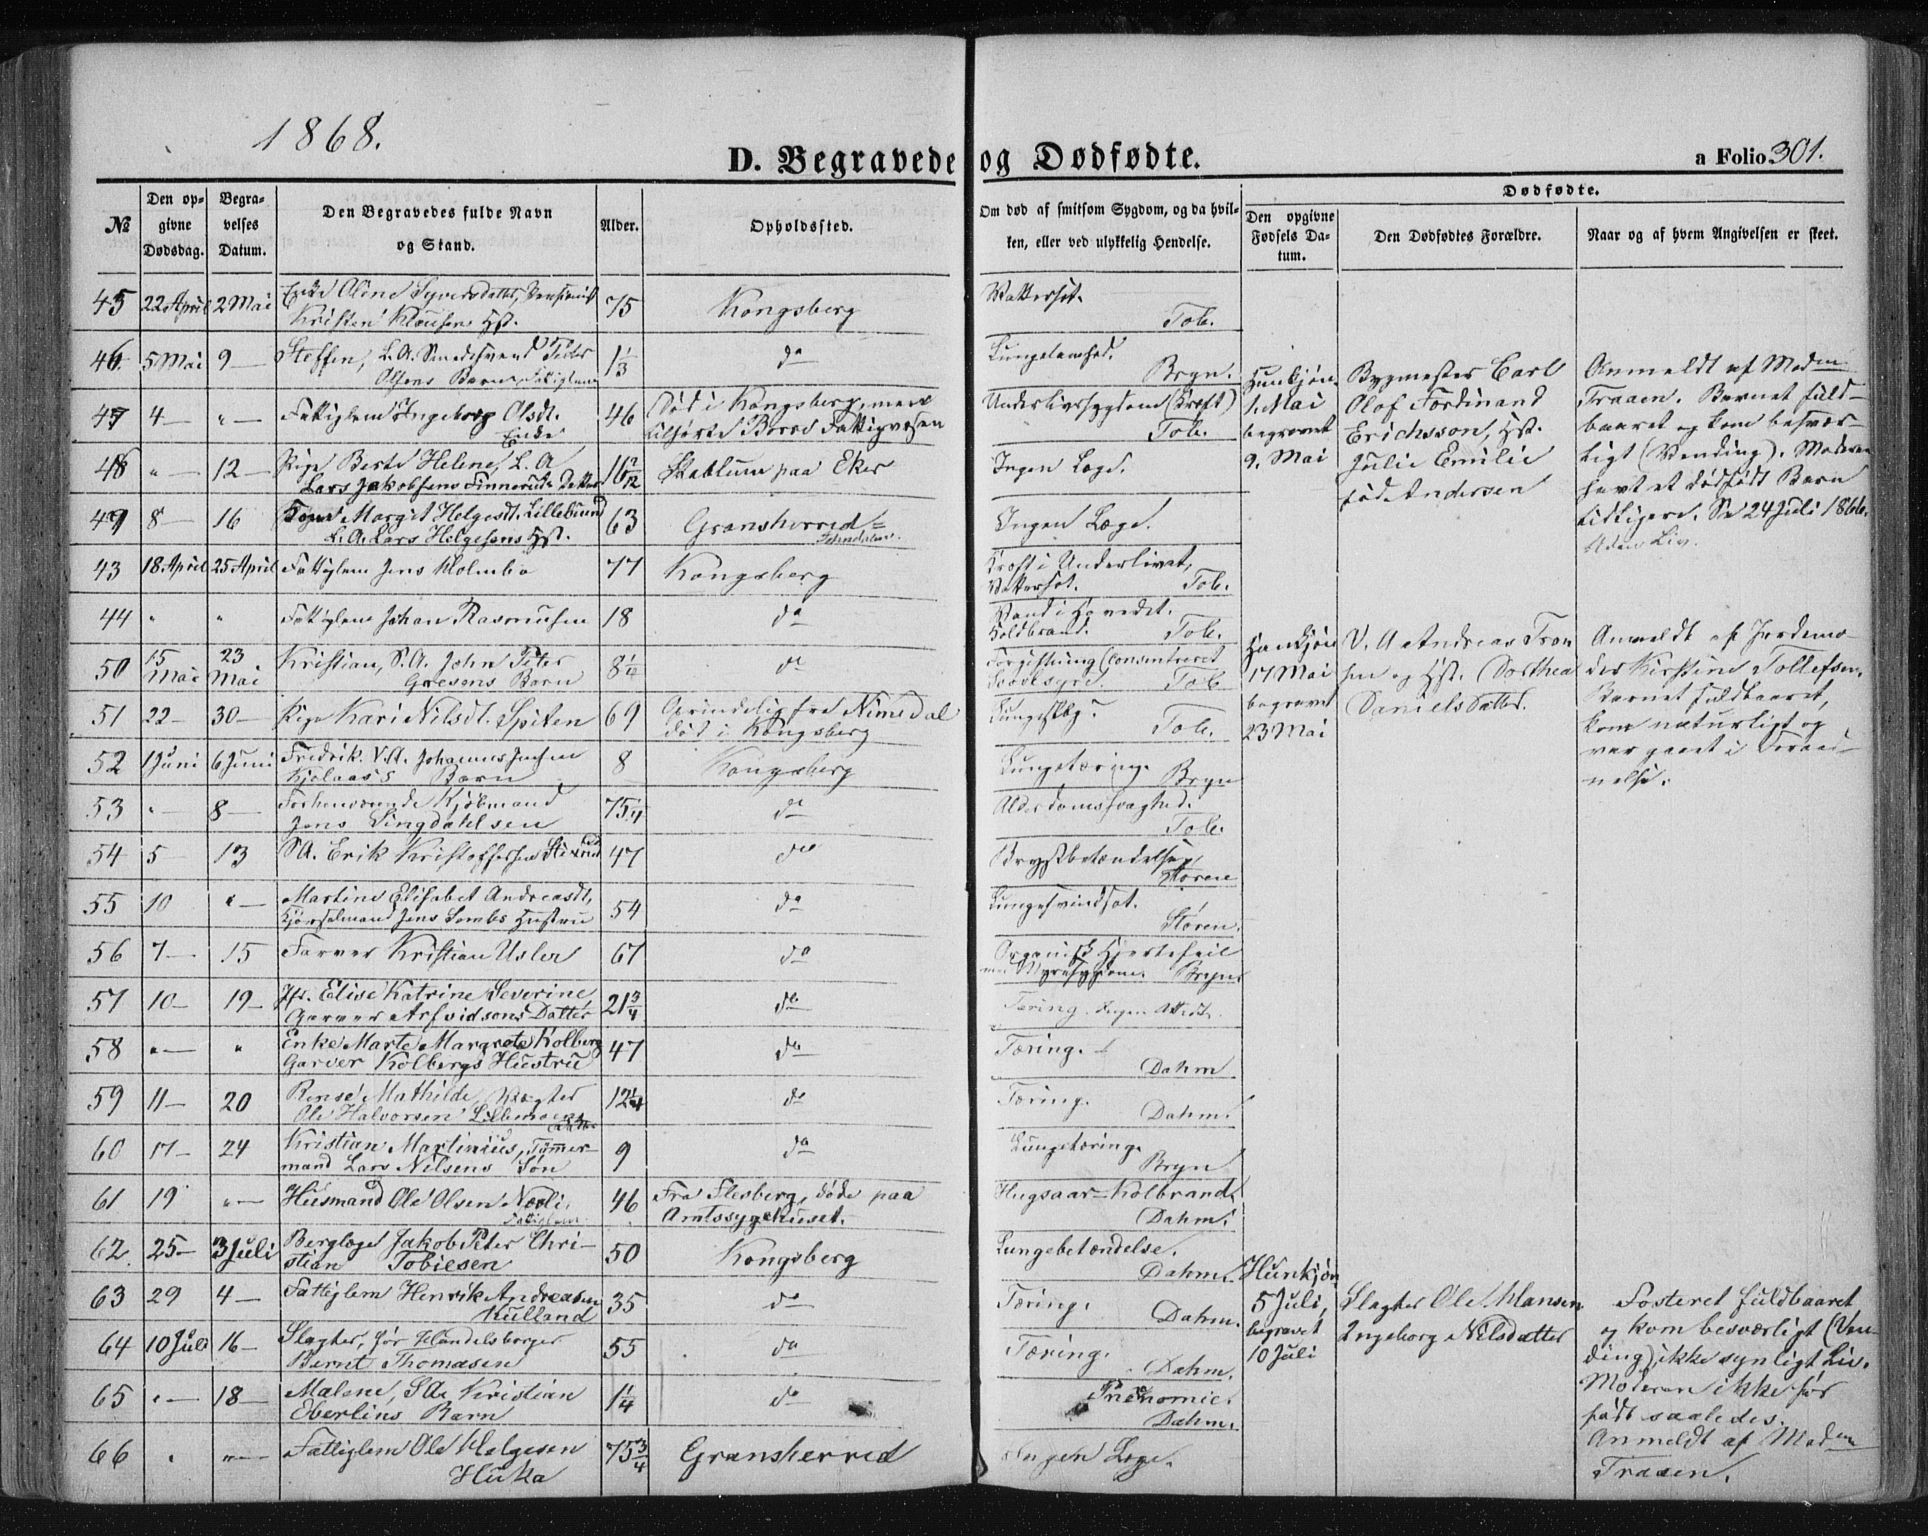 1868.
D. Begravede og Dødfødte.
a Folio 301.
№
Den opgivne Dødsdag.
Begravelses Datum.
Den Begravedes fulde Navn og Stand.
Alder.
Opholdssted.
Om død af smitsom Sygdom, og da hvilken, eller ved ulykkelig Hendelse.
Dødfødte.
Den opgivne Fødsels Datum.
Den Dødfødtes Forældre.
Naar og af hvem Angivelsen er skeet.
45 22 April 2 Mai Enke Oline Syversdatter, Pensionist 75 Kongsberg Vattersot.
Kristen Klausens Hst. Tob.
46 5 Mai 9 — Steffen, L.A. Smedesvend Peter 1 1/3 do Lungelamhed.
Olsens Barn, Fattiglem Bryn.
47 4 — " — Fattiglem Ingeborg Olsdt. 46 Død i Kongsberg, men Underlivssygdom (Kræft)
Enke tilhørte Fattigvæsen Tob.
48 " — 12 — Pige Berte Helene, L.A. Skablum paa Eker Ingen Læge.
Lars Jakobsens Finneruds Datter
49 8 — 16 Margit Helgesdt. Lillebund 63 Gransherred= Ingen Læge.
L.A. Lars Helgesens Hst.
43 18 April 25 April Fattiglem Jens Holmbo 77 Kongsberg Kræft i Underlivet,
Vattersot. Tob.
44 " " Fattiglem Johan Rasmussen 18 do Vand i Hovedet.
Koldbrand. Tob.
50 15 Mai 23 Mai Kristian, S.A. John Peter 8 1/2 do Forgiftning (consentreret
Gresens Barn Svovlsyre. Tob.
51 22 — 30 — Pige Kari Nilsdt. Spiten 69 Oprindelig fra Nimedal Lungesbg.
død i Kongsberg Tob.
52 1 Juni 6 Juni Fredrik. V.A. Johannes Jensen 8 Kongsberg Lungetæring.
Kjolaas's Barn Bryn
53 " 8 — Forhenværende Kjøbmand 75 1/4 do Alderdomssvaghed.
Jens Lingdahlsen Tob.
54 5 — 13 S.A. Erik Kristoffersen 47 do Brystbetændelse
Støren
55 10 " — Martine Elisabet Andreasdt. 54 do Lungesvindsot.
Kjørselmand Jens Lembs Hustru Støren.
56 7 — 15 Farver Kristian Usler 67 do Organisk Hjertefeil
Bryn
57 10 — 19 — Jfr. Elise Katrine Severine 21 3/4 do Tæring. Ingen Attest.
Garver Arfvidsons Datter
58 " — " Enke Marte Margrete Kolberg 47 do Tæring.
Garver Kolbergs Hustru Dahm
59 11 — 20 Mathilde, 12 1/4 do Tæring.
Ole Halvorsen Lillemoens Dahm.
60 17 — 24 Kristian Martinius, Tømmer- 9 do Lungetæring.
mand Lars Nilsens Søn Bryn
61 19 " — Husmand Ole Olsen Nœrli. 46 Fra Flesberg, døde paa Hugsaar=Kolbrand.
Fattiglem Amtssygehuset. Dahm.
62 25 — 3 Juli Berglæge Jakob Peter Chri- 50 Kongsberg Lungebetændelse.
stian Tobiesen Dahm.
63 29 4 — Fattiglem Henrik Andreasen 35 do Tæring.
Kulland Dahm.
64 10 Juli 16 — Slagter, før Handelsborger 55 do Tæring.
Bernt Thomasen Dahm.
65 " — 18 — Malene, S.A. Kristian 1 1/4 do Pneumonie.
Eberlins Barn Dahm.
66 " " — Fattiglem Ole Helgesen 75 3/4 Gransherred Ingen Læge.
Huka
Hunkjøn
1. Mai
begravet
9. Mai
Bygmester Carl
Olof Ferdinand
Erichsson, Hst.
Julie Emilie
født Andersen
Anmeldt af Madm
Traaen. Barnet fuld-
baaret og kom besvær-
ligt (Vending). Moderen
havt et dødfødt Barn
tidligere. Se 24 Juli 1866.
Uden Liv.
Hankjøn
17 Mai
begravet
23 Mai
V. A. Andreas Tron
sen og Hst. Dorthea
Daniels Datter.
Anmeldt af Jordemo-
der Kirstine Tollefsen.
Barnet fuldbaaret,
kom naturligt og
var gaaet i Foraad-
nelse.
Hunkjøn
5 Juli,
begravet
10 Juli
Slagter Ole Hansen
Ingeborg Nilsdatter
Fosteret fuldbaaret
og kom besværligt (Ven-
ding), ikke synligt Liv.
Moderen ikke før
født saaledes.
Anmeldt af Madm
Traaen.